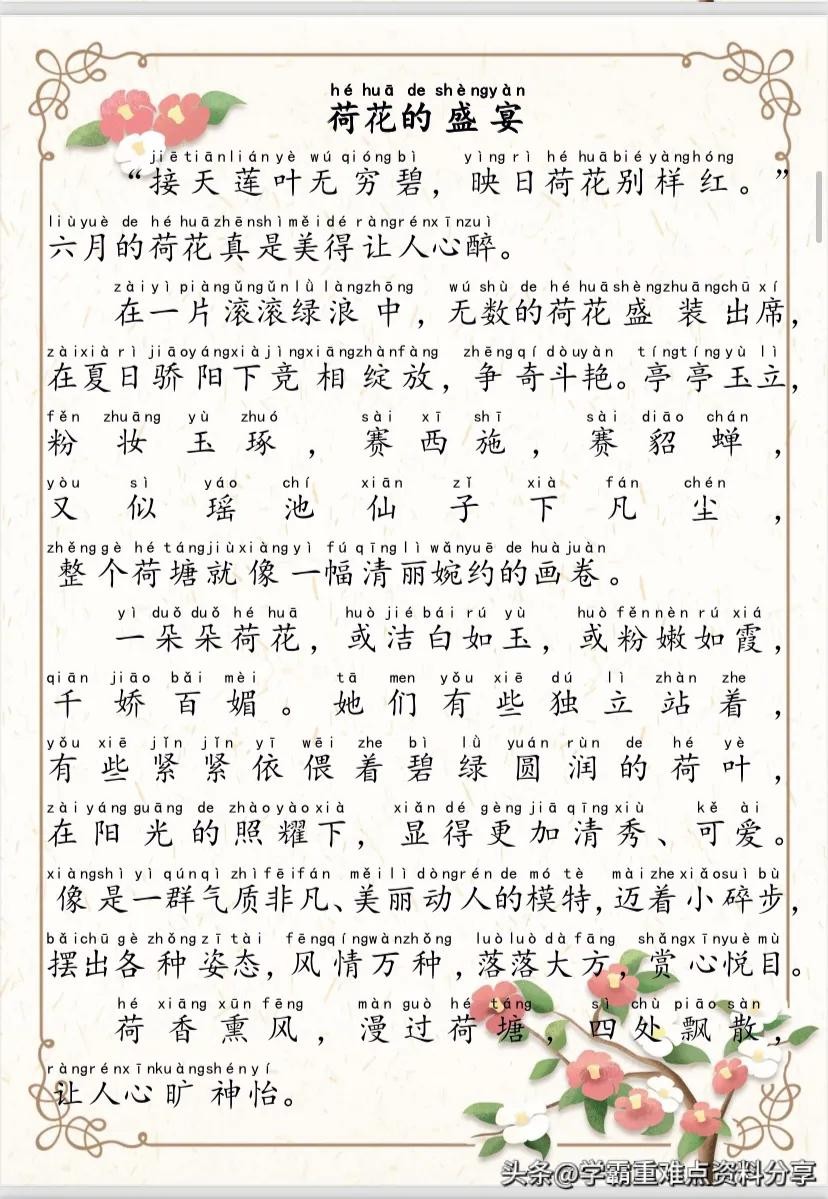 hé huā de shèngyàn
荷花的盛宴
jiētiānliányè wú qióngbì yìngrì hé huābiéyànghóng
“接天莲叶无穷碧，映日荷花别样红。”
liùyuè de hé huāzhēnshìměidé ràngrénxīnzuì
六月的荷花真是美得让人心醉。
zàiyì piàngǔngǔnlǜ làngzhōng wú shù de hé huāshèngzhuāngchū xí
在一片滚滚绿浪中，无数的荷花盛装出席，
zàixià rì jiāoyángxiàjìngxiāngzhànfàng zhēngqí dòuyàn tíngtíngyù lì
在夏日骄阳下竞相绽放，争奇斗艳。亭亭玉立，
fěn zhuāng yù zhuó sài xī shī sài diāo chán
粉妆玉琢，赛西施，赛貂蝉，
yòu sì yáo chí xiān zǐ xià fán chén
又似瑶池仙子下凡尘，
zhěnggè hé tángjiùxiàngyì fú qīnglì wǎnyuē de huàjuàn
整个荷塘就像一幅清丽婉约的画卷。
yì duǒ duǒ hé huā huò jié bái rú yù huò fěnnèn rú xiá
一朵朵荷花，或洁白如玉，或粉嫩如霞，
qiān jiāo bǎi mèi tā men yǒu xiē dú lì zhàn zhe
千娇百媚。她们有些独立站着，
yǒu xiē jǐn jǐn yī wēi zhe bì lǜ yuán rùn de hé yè
有些紧紧依偎着碧绿圆润的荷叶，
zài yáng guāng de zhào yào xià xiǎn dé gèng jiā qīng xiù kě ài
在阳光的照耀下，显得更加清秀、可爱。
xiàngshì yì qúnqì zhìfēifán měilì dòngrén de mó tè màizhexiǎosuì bù
像是一群气质非凡、美丽动人的模特，迈着小碎步，
bǎichū gè zhǒng zī tài fēngqíngwànzhǒng luòluò dà fāng shǎngxīnyuè mù
摆出各种姿态，风情万种，落落大方，赏心悦目。
hé xiāng xūn fēng màn guò hé táng sì chù piāo sàn
荷香熏风，漫过荷塘，四处飘散，
ràngrénxīnkuàngshényí
让人心旷神怡。
头条@学霸重难点资料分享